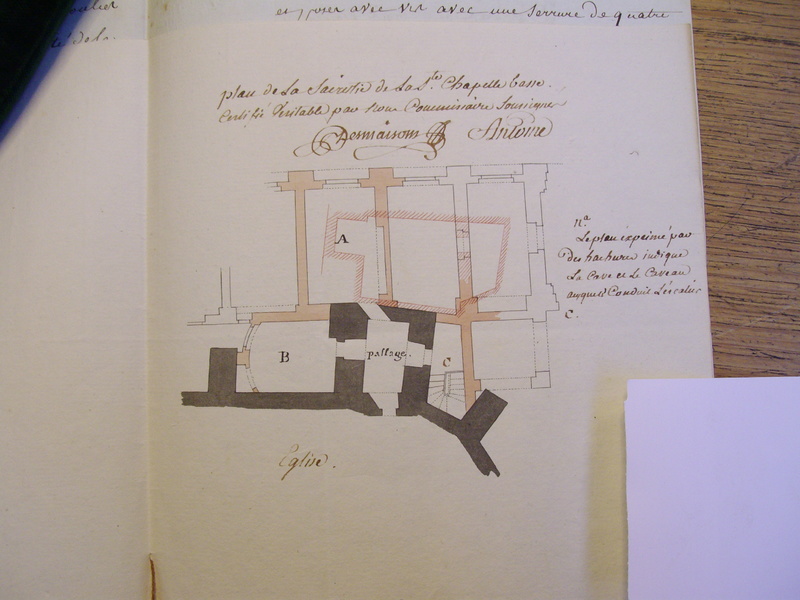 et poser avec vis avec une Serrure de quatre
de la.
plan de La Sacristie de La Ste Chapelle basse.
Certifié Véritable par Nous Commissaire Soussigné
Desmaisons Antoine
A
Na
Le plan exprimé par
des hachures indique
La Cave et Le Caveau
auquel Conduit L'escalier
C.
B
passage.
C
Eglise.